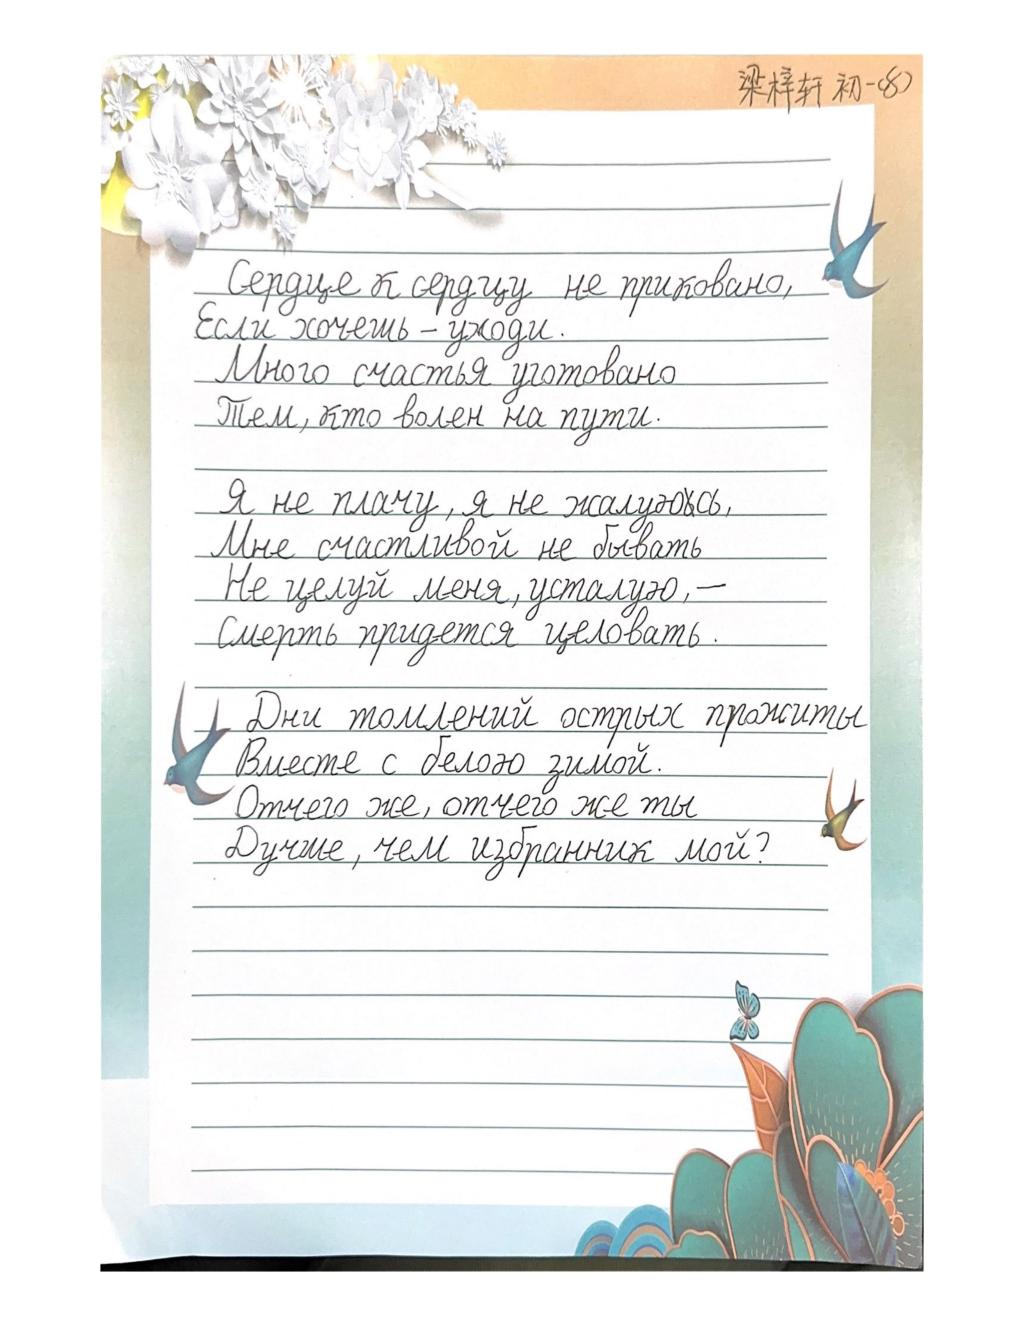 梁梓轩 初一(8)
Сердце к сердцу не приковано,
Если хочешь – уходи.
Много счастья уготовано
Тем, кто волен на пути.
Я не плачу, я не жалуюсь,
Мне счастливой не бывать
Не целуй меня, усталую, —
Смерть придется целовать.
Дни томлений острых прожиты
Вместе с белою зимой.
Отчего же, отчего же ты
Лучше, чем избранник мой?